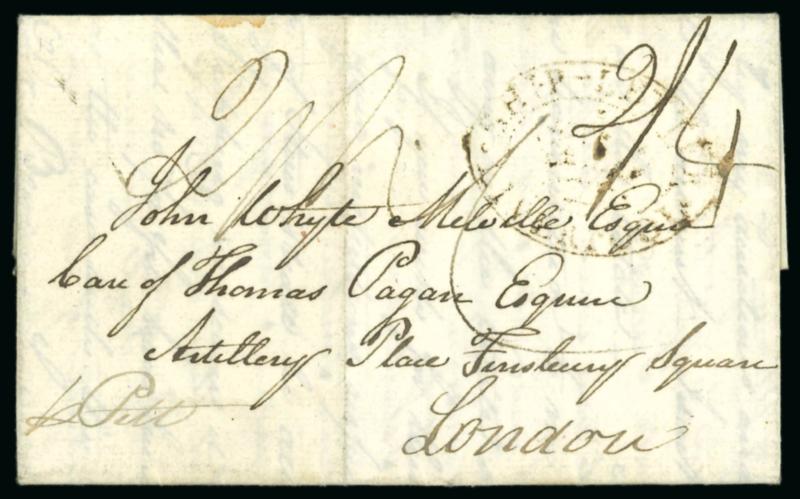 2/4
SHIP-LETTER
John Whyte Melville Esqre
Care of Thomas Pagan Esquire
Artillery Place Finsbury Square
London
p Pitt